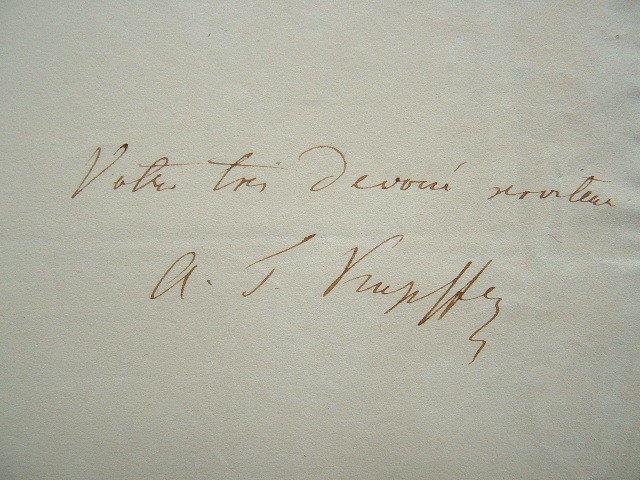 Votre très devoué serviteur
A. T. Kupffer